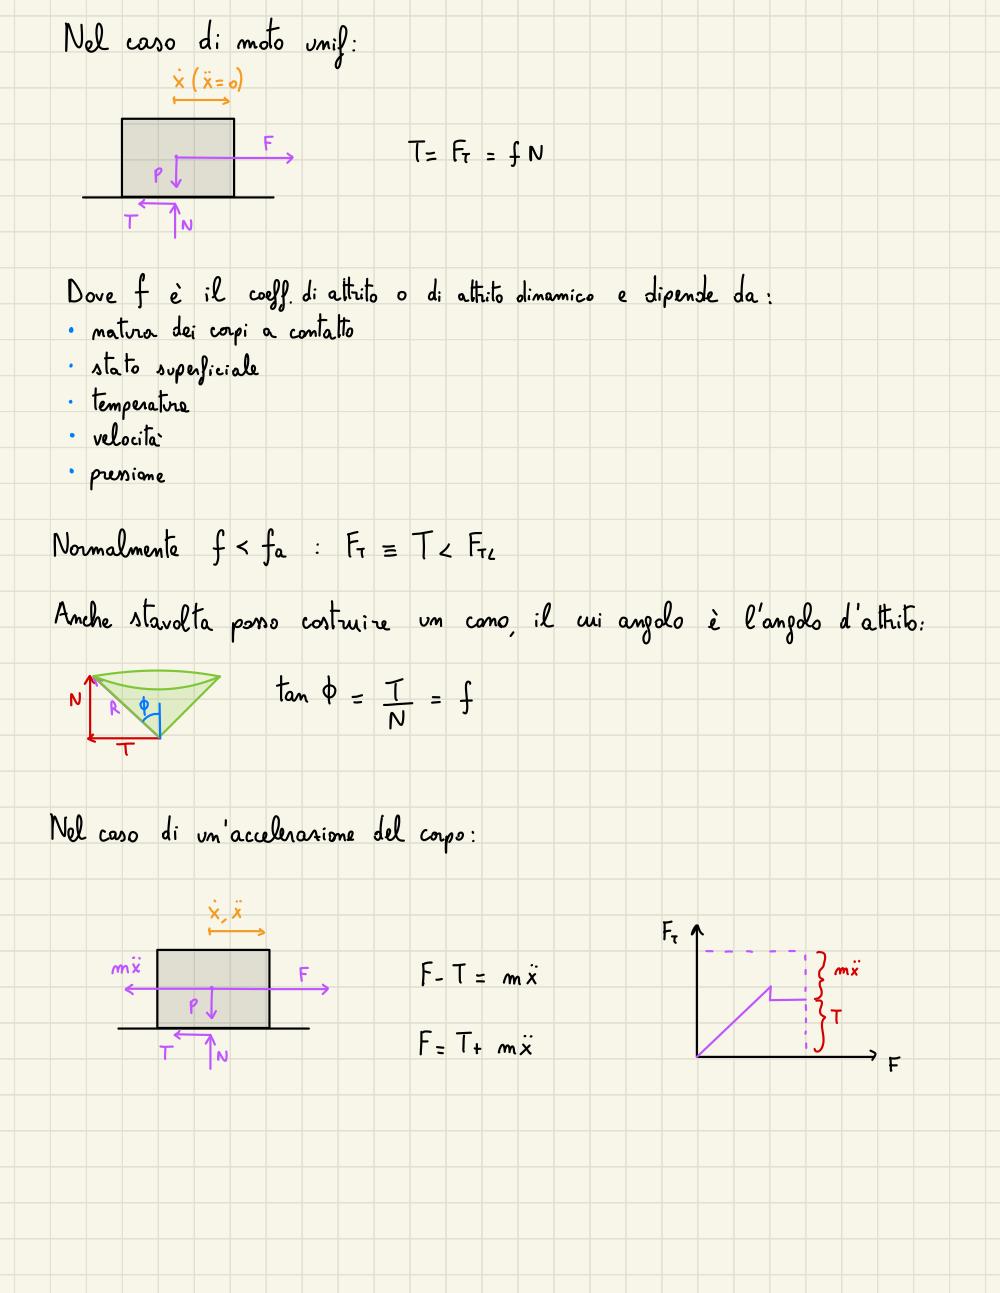 Nel caso di moto unif:
ẋ (ẍ = 0)
F
P
T
N
T = F_T = f N
Dove f è il coeff. di attrito o di attrito dinamico e dipende da:
• natura dei corpi a contatto
• stato superficiale
• temperatura
• velocità
• pressione
Normalmente f < fₐ : F_T ≡ T < F_TL
Anche stavolta posso costruire un cono, il cui angolo è l'angolo d'attrito:
N
R
ϕ
T
tan ϕ = T/N = f
Nel caso di un'accelerazione del corpo:
ẋ, ẍ
mẍ
F
P
T
N
F - T = mẍ
F = T + mẍ
F_T
mẍ
T
F